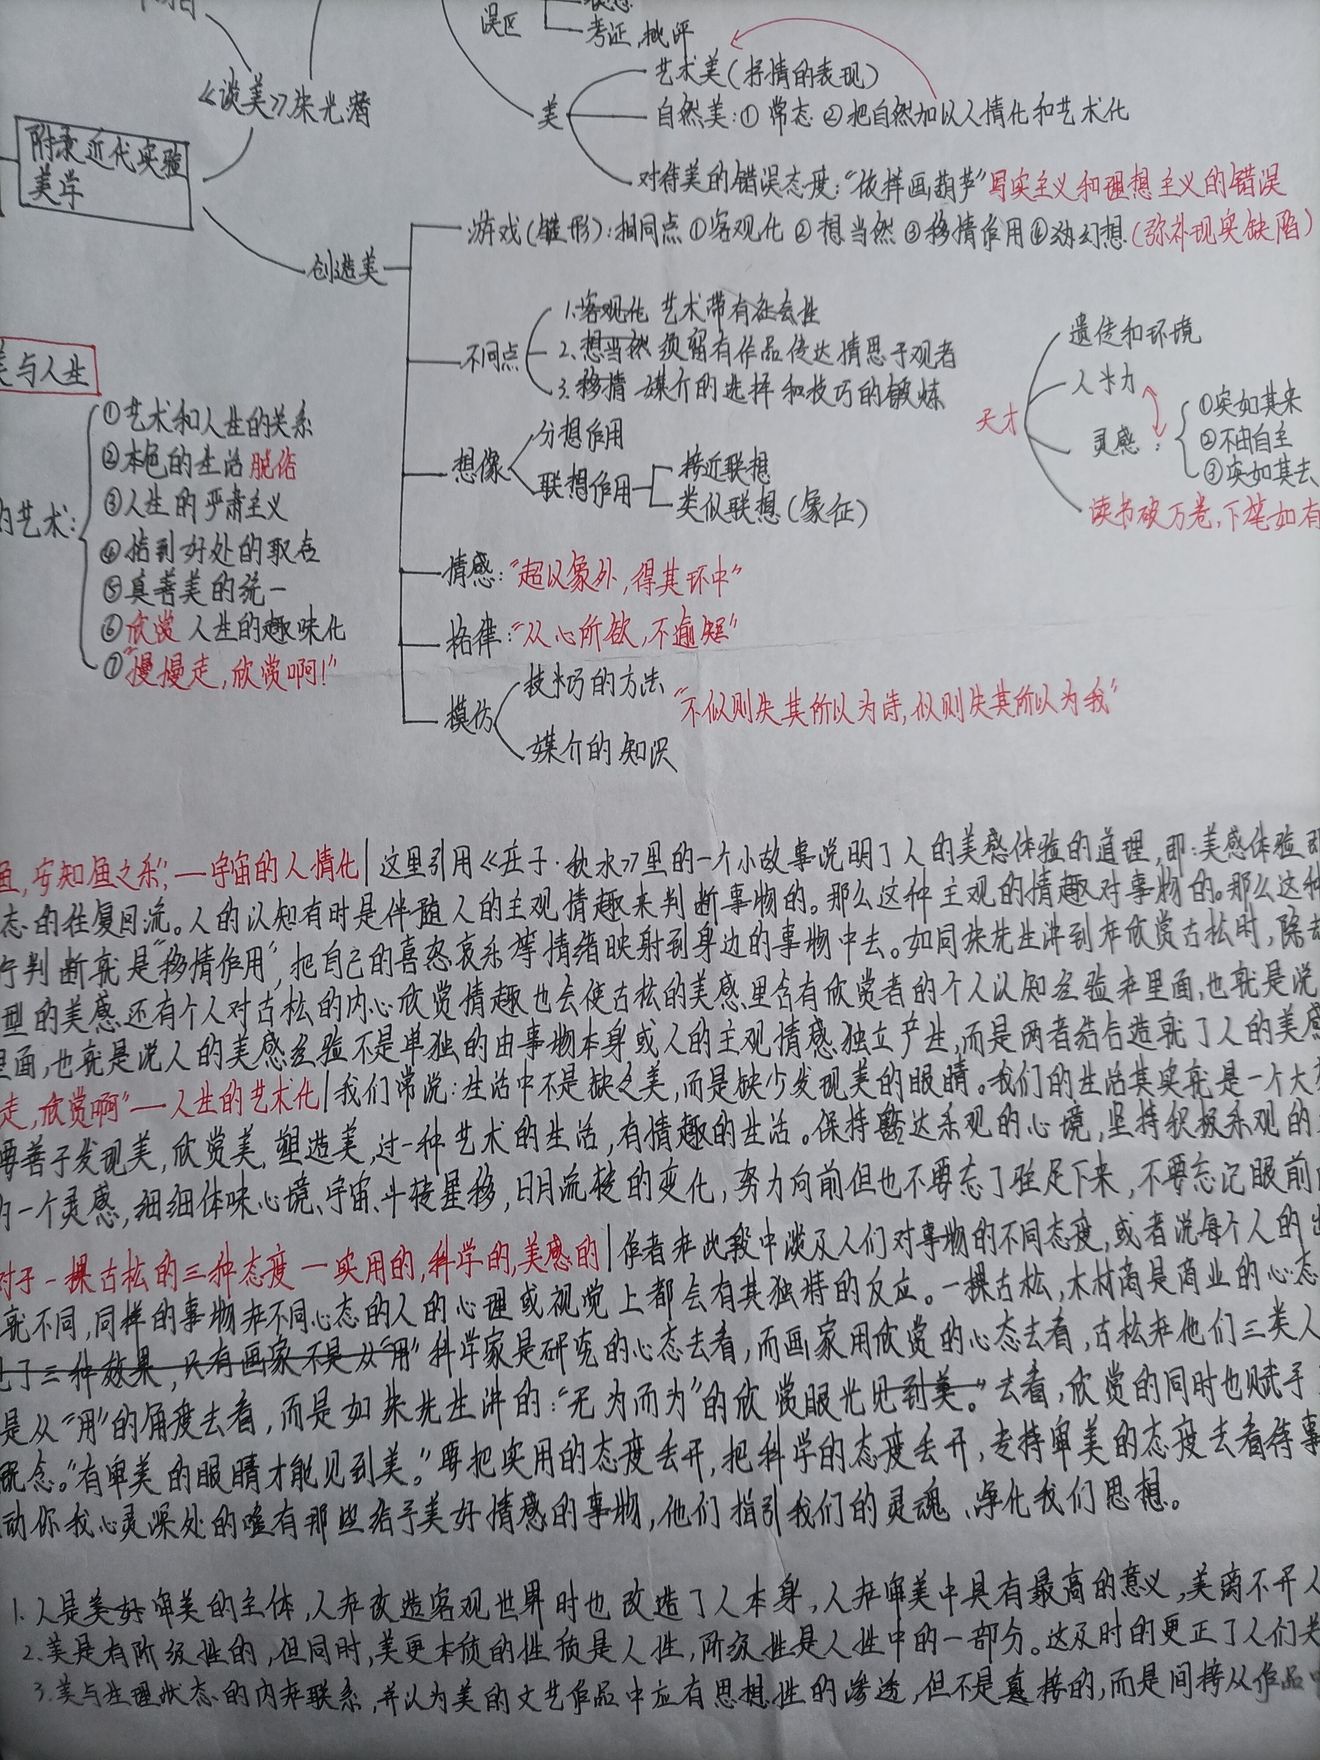 误区
考证,批评
《谈美》朱光潜
美
艺术美(抒情的表现)
自然美:①常态②把自然加以人情化和艺术化
对待美的错误态度:“依样画葫芦”写实主义和理想主义的错误
附录近代实验
美学
创造美
游戏(雏形):相同点①客观化②想当然③移情作用④幻想(弥补现实缺陷)
不同点
1.客观化 艺术带有社会性
2.想当然 须留有作品传达情思于观者
3.移情 媒介的选择和技巧的锻炼
想像
分想作用
联想作用
接近联想
类似联想(象征)
情感:“超以象外,得其环中”
格律:“从心所欲,不逾矩”
模仿
技巧的方法
媒介的知识
“不似则失其所以为诗,似则失其所以为我”
天才
遗传和环境
人力
灵感:
①突如其来
②不由自主
③突如其去
读书破万卷,下笔如有
美与人生
的艺术:
①艺术和人生的关系
②本色的生活 脱俗
③人生的严肃主义
④恰到好处的取舍
⑤真善美的统一
⑥欣赏 人生的趣味化
⑦“慢慢走,欣赏啊!”
鱼,安知鱼之乐”,—宇宙的人情化|这里引用《庄子·秋水》里的一个小故事说明了人的美感体验的道理,即:美感体验
态的往复回流。人的认知有时是伴随人的主观情趣来判断事物的。那么这种主观的情趣对事物的。那么这种
行判断就是“移情作用”,把自己的喜怒哀乐等情绪映射到身边的事物中去。如同朱先生讲到在欣赏古松时,除
型的美感还有个人对古松的内心欣赏情趣也会使古松的美感里含有欣赏者的个人认知经验在里面,也就是说
里面,也就是说人的美感经验不是单独的由事物本身或人的主观情感独立产生,而是两者结合造就了人的美感
走,欣赏啊”—人生的艺术化|我们常说:生活中不是缺乏美,而是缺少发现美的眼睛。我们的生活其实就是一个大
要善于发现美,欣赏美,塑造美,过一种艺术的生活,有情趣的生活。保持豁达乐观的心境,坚持积极乐观的
的一个灵感,细细体味心境、宇宙、斗转星移,日月流转的变化,努力向前但也不要忘了驻足下来,不要忘记眼前
对于一棵古松的三种态度—实用的,科学的,美感的|作者在此段中谈及人们对事物的不同态度,或者说每个人的
就不同,同样的事物在不同心态的人的心理或视觉上都会有其独特的反应。一棵古松,木材商是商业的心态
了三种效果,只有画家不是从“用”科学家是研究的心态去看,而画家用欣赏的心态去看,古松在他们三类人
是从“用”的角度去看,而是如朱先生讲的:“无为而为”的欣赏眼光见到美。”去看,欣赏的同时也赋予
概念。“有审美的眼睛才能见到美。”要把实用的态度丢开,把科学的态度丢开,专持审美的态度去看待事
动你我心灵深处的唯有那些给予美好情感的事物,他们指引我们的灵魂、净化我们思想。
1.人是美好审美的主体,人在改造客观世界时也改造了人本身,人在审美中具有最高的意义,美离不开人
2.美是有阶级性的,但同时,美更本质的性质是人性,阶级性是人性中的一部分。这及时的更正了人们关
3.美与生理状态的内在联系,并认为美的文艺作品中应有思想性的渗透,但不是直接的,而是间接从作品中